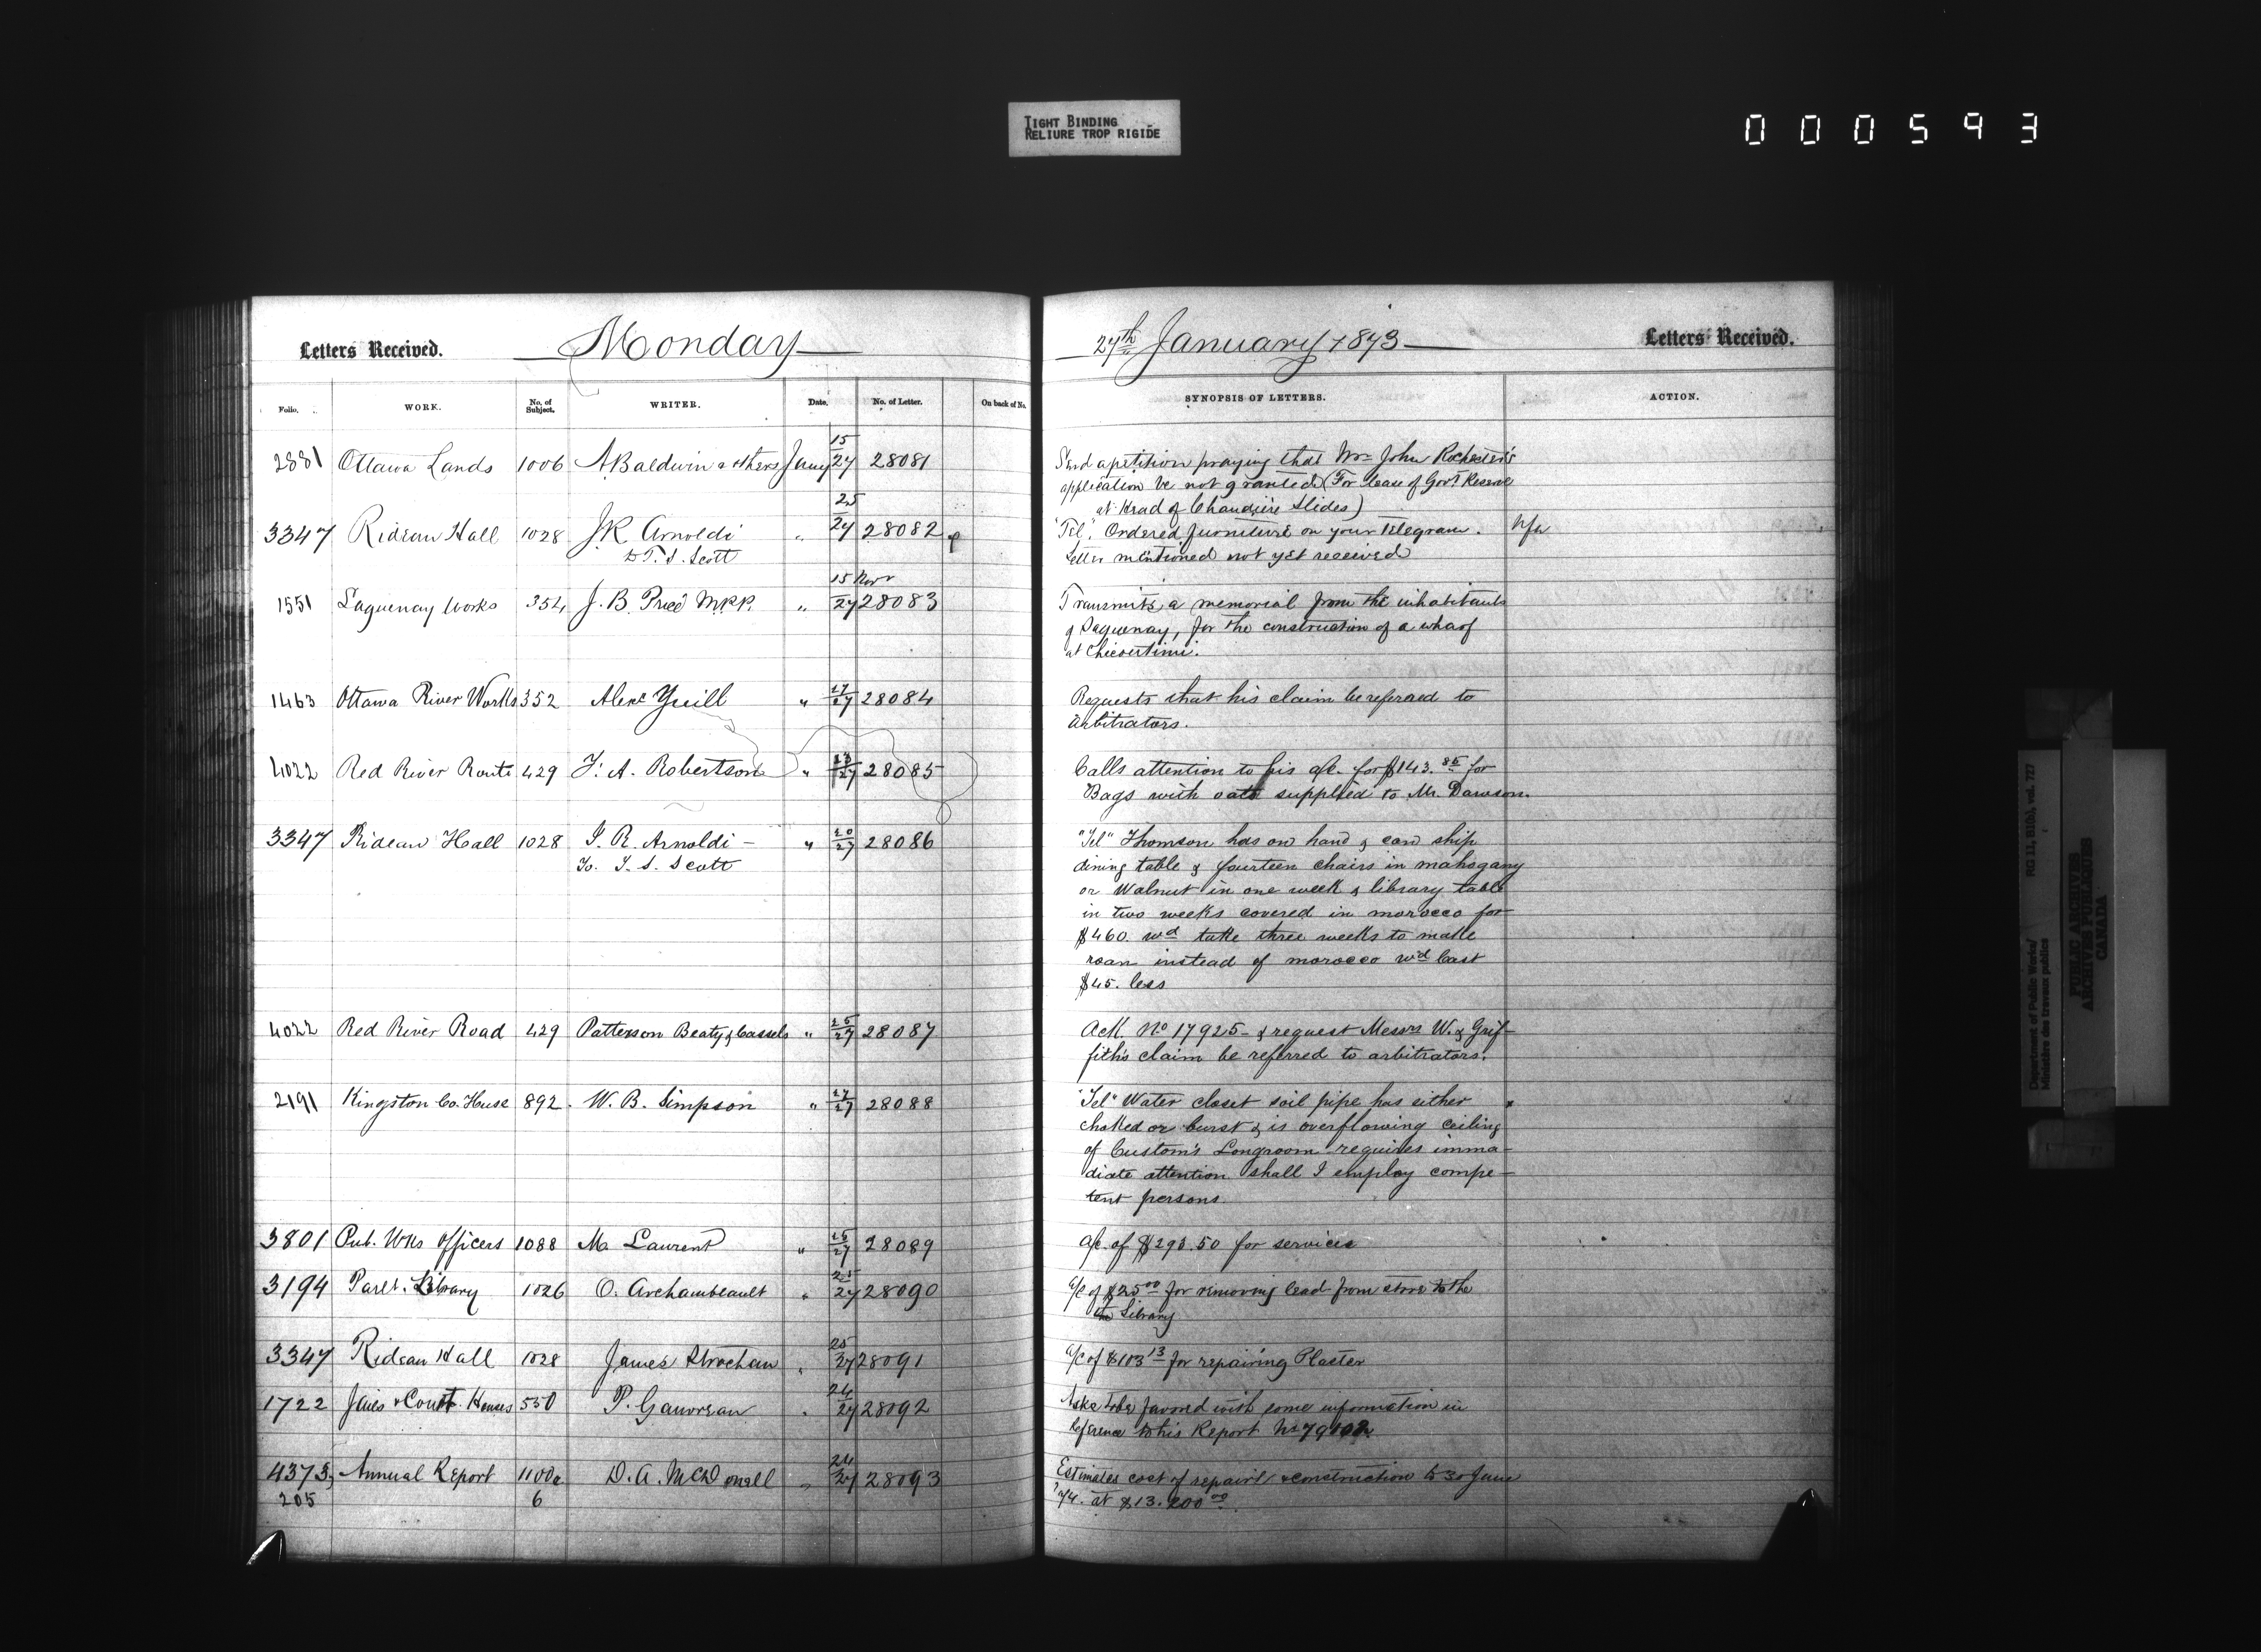 TIGHT BINDING
RELIURE TROP RIGIDE
000593
Letters Received. Monday
27th January 1873 Letters Received.
Folio. WORK. No. of Subject. WRITER. Date. No. of Letter. On back of No. SYNOPSIS OF LETTERS. ACTION.
2881 Ottawa Lands 1006 A Baldwin & others Jany 15/27 28081 Send a petition praying that Mr John Rochester's
application be not granted (For lease of Govt Reserve
at Head of Chaudière Slides)
3347 Rideau Hall 1028 J R Arnoldi " 25/27 28082 "Tel". Ordered furniture on your telegram. Nfa
to T. S. Scott Letter mentioned not yet received
1551 Saguenay Works 354 J. B. Price MPP. " 15 Nov/27 28083 Transmits a memorial from the inhabitants
of Saguenay, for the construction of a wharf
at Chicoutimi.
1463 Ottawa River Works 352 Alexr Yuill " 27/27 28084 Requests that his claim be referred to
Arbitrators.
4022 Red River Route 429 T. A. Robertson " 23/27 28085 Calls attention to his a/c. for $143.85 for
Bags with oats supplied to Mr. Dawson.
3347 Rideau Hall 1028 J. R. Arnoldi - " 20/27 28086 "Tel" Thomson has on hand & can ship
To. T. S. Scott dining table & fourteen chairs in mahogany
or Walnut in one week & library table
in two weeks covered in morocco for
$460. wd take three weeks to make
roan instead of morocco wd cost
$45. less
4022 Red River Road 429 Patterson Beaty & Cassels " 25/27 28087 Ack. No 17925 - & request Messrs W. & Grif-
fith's claim be referred to arbitrators.
2191 Kingston Co. House 892. W. B. Simpson " 27/27 28088 "Tel" Water closet soil pipe has either
choked or burst & is overflowing ceiling
of Custom's Longroom requires imma-
diate attention shall I employ compe-
tent persons.
3801 Pub. Wks Officers 1088 M. Laurent " 25/27 28089 A/c. of $293.50 for services
3194 Parlt. Library 1026 O. Archambeault " 25/27 28090 a/c of $25.00 for removing lead from store to the
Library
3347 Rideau Hall 1028 James Strachan " 25/27 28091 a/c of $103.13 for repairing Plaster
1722 Jails & Court Houses 550 P. Gauvreau " 24/27 28092 Asks to be favored with some information in
reference to his Report No
4373, Annual Report 1100a D. A. McDonell " 24/27 28093 Estimates cost of repairs & construction to 30 June
205 6 '74. at $13.200.00
Department of Public Works/ RG 11, B1(b), vol. 727
Ministère des travaux publics
PUBLIC ARCHIVES
ARCHIVES PUBLIQUES
CANADA